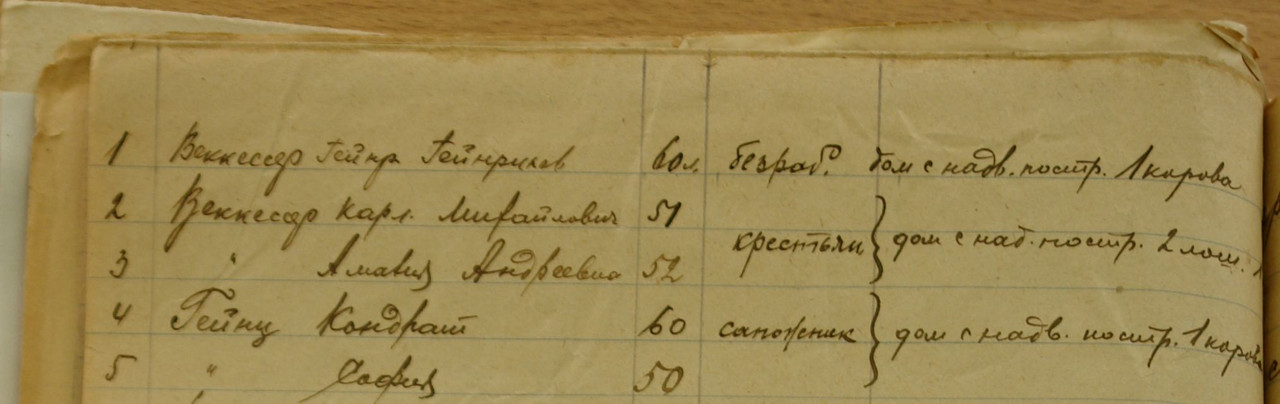 1 Веккессер Гейнр. Гейнрихов 60 л. безраб. дом с надв. постр. 1 корова
2 Веккессер Карл. Михайлович 51
крестьян } дом с над. постр. 2 лош.
3 " Амалия Андреевна 52
4 Гейнц Кондрат 60 сапожник } дом с надв. постр. 1 корова
5 " София 50